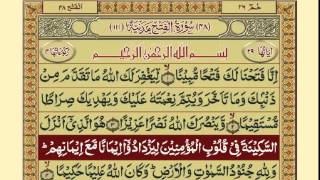 حٰمٓ ٢٦ الفتح ٤٨
اٰيَاتُهَا ٢٩ (٤٨) سُوْرَةُ الْفَتْحِ مَدَنِيَّةٌ (١١١) رُكُوْعَاتُهَا ٤
بِسْمِ اللهِ الرَّحْمٰنِ الرَّحِيْمِ
اِنَّا فَتَحْنَا لَكَ فَتْحًا مُّبِيْنًا ۙ لِّيَغْفِرَ لَكَ اللّٰهُ مَا تَقَدَّمَ مِنْ
ذَنْۢبِكَ وَمَا تَاَخَّرَ وَيُتِمَّ نِعْمَتَهٗ عَلَيْكَ وَيَهْدِيَكَ صِرَاطًا
مُّسْتَقِيْمًا ۙ وَّيَنْصُرَكَ اللّٰهُ نَصْرًا عَزِيْزًا هُوَ الَّذِيْٓ اَنْزَلَ
السَّكِيْنَةَ فِيْ قُلُوْبِ الْمُؤْمِنِيْنَ لِيَزْدَادُوْٓا اِيْمَانًا مَّعَ اِيْمَانِهِمْ ؕ
وَلِلّٰهِ جُنُوْدُ السَّمٰوٰتِ وَالْاَرْضِ ؕ وَكَانَ اللّٰهُ عَلِيْمًا حَكِيْمًا